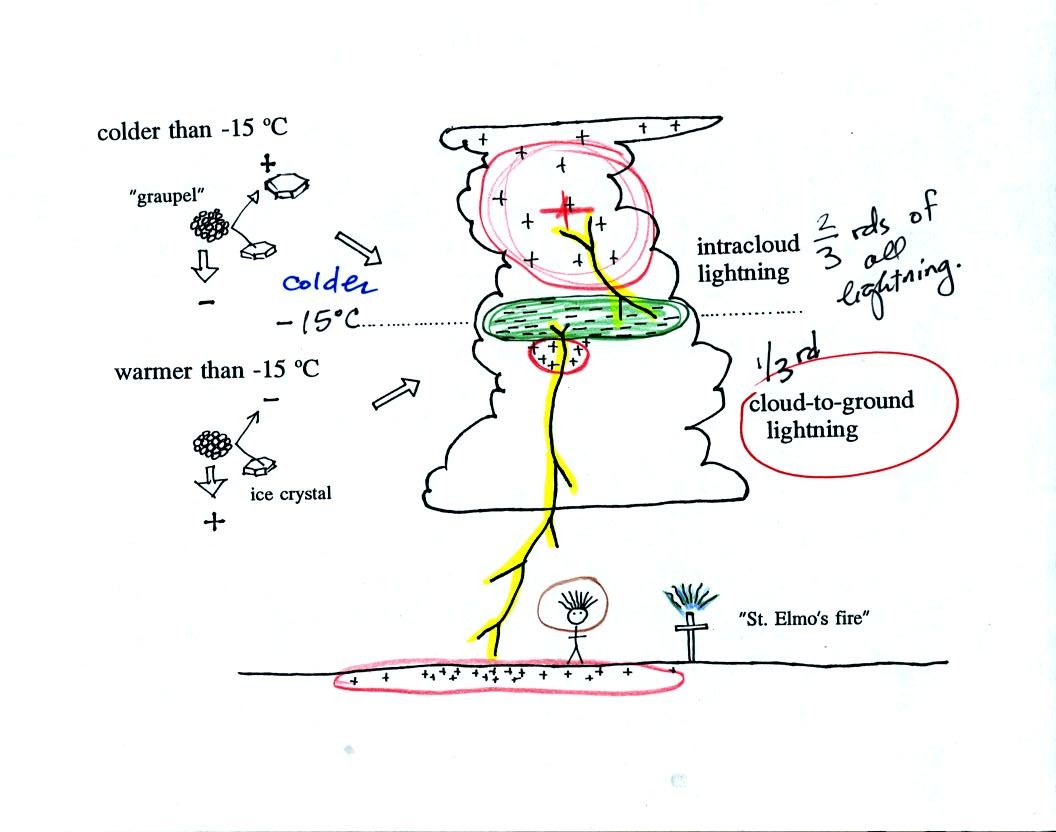 colder than -15 ºC
+
"graupel"
-
colder
-15°C
warmer than -15 ºC
-
ice crystal
+
intracloud
lightning
2/3 rds of
all
lightning.
1/3 rd
cloud-to-ground
lightning
"St. Elmo's fire"